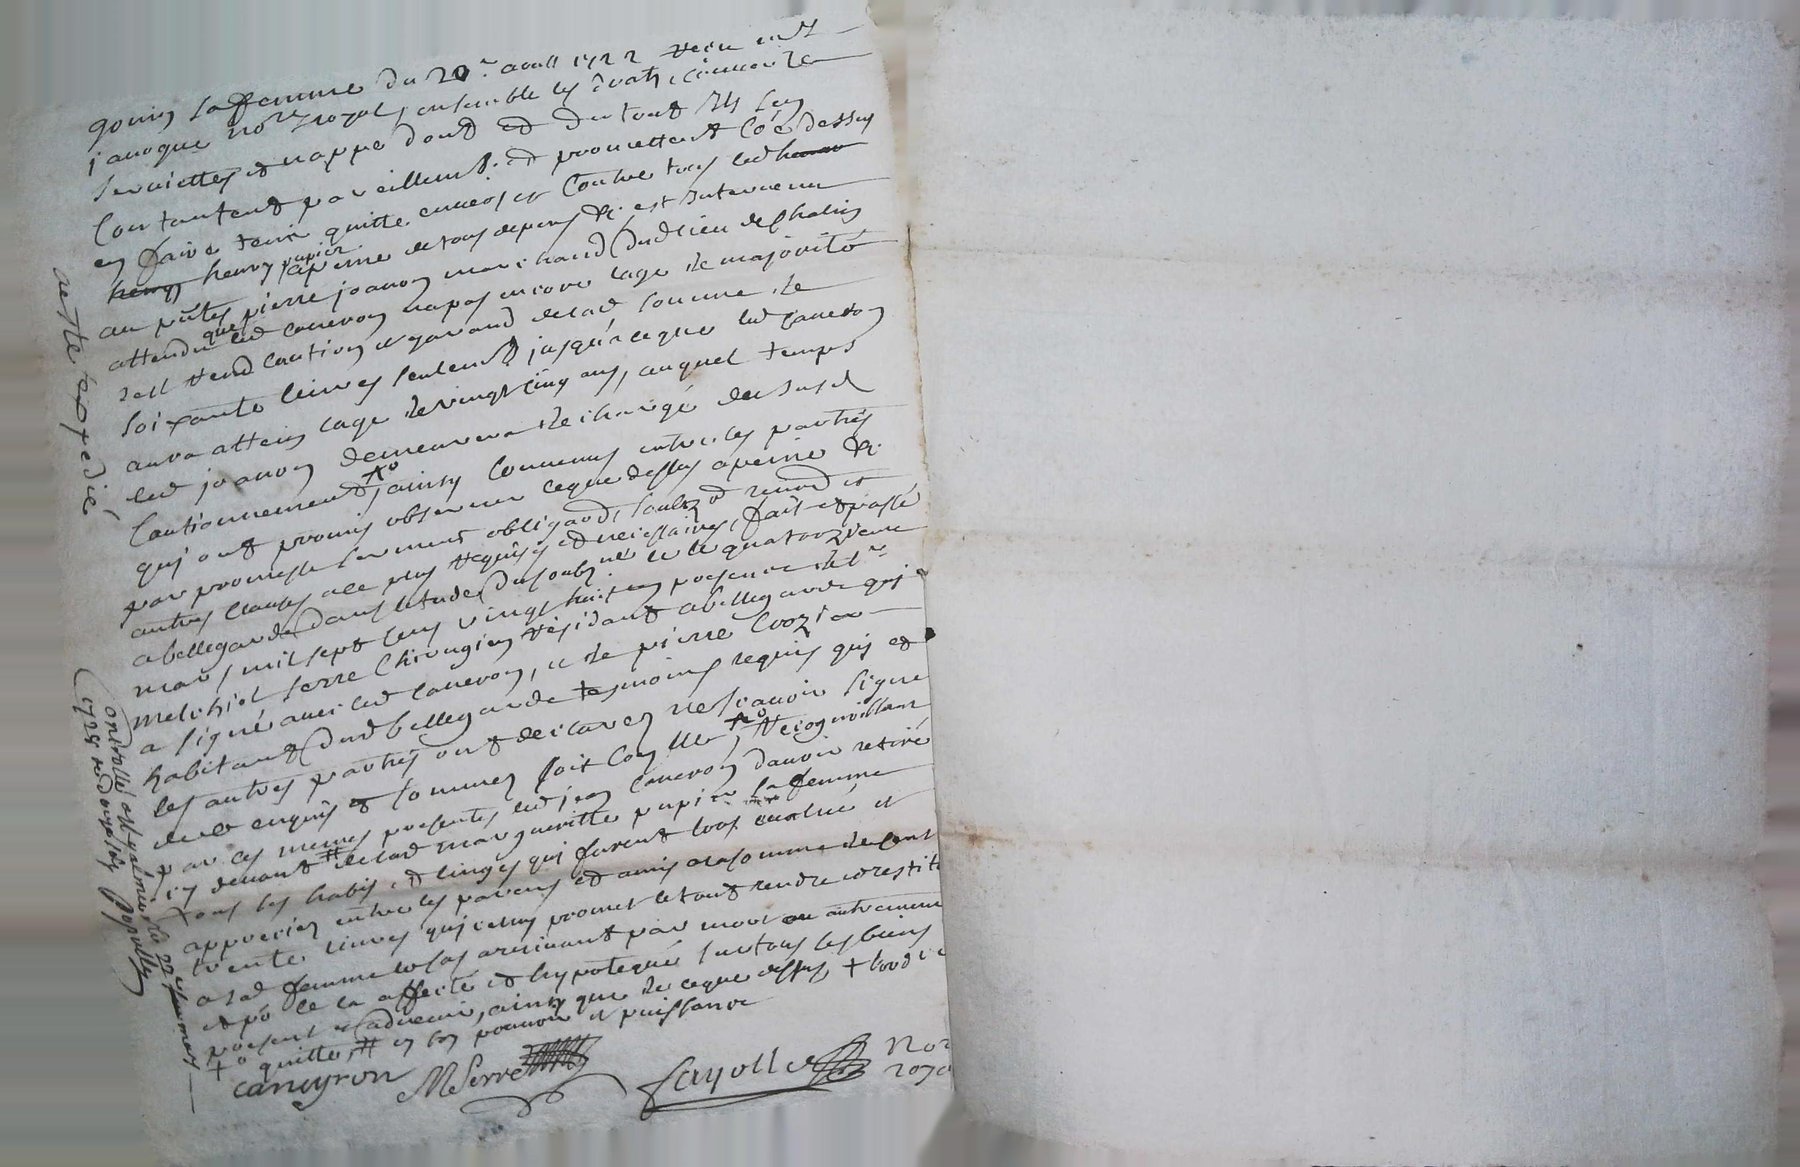 gonin sa femme du 20e avril 1722 receu
janoque nore royal, ensemble les draps, couverte
serviettes et nappe dont et du tout ils sen
contantent pareillemt. et promettent coe dessus
en faire tenir quitte envers et contre tous led
henry papier a peine de tous depens &c. est intervenu
au pntes pierre joanon marchand dud lieu de
attendu que led caneron na pas encore lage de majorité
sest rend caution et garand de lad somme de
soixante livres seulemt jusqua ce que led caneron
aura attein lage de vingt cinq ans, auquel temps
led joanon demeurera dechargé dud
cautionnement, ainsy convenus entre les parties
qui ont promis observer ce que dessus a peine &c.
par promesse serment obligaon, soubz on renon et
autres clauses a ce plus requises et necessaires, fait et passé
a bellegarde dans letude du soubzné le quatorzieme
mars mil sept cens vingt huit en presence de sr
melchiol serre chirurgien residant a bellegarde qui
a signé avec led caneron, et de pierre crozier
habitant dud bellegarde tesmoins requis qui et
les autres parties ont declarez ne scavoir signe
de ce enquis et sommez soit Con lle, Recognoissant
par ces memes presentes led jean caneron davoir retiré
cy devant de lad margueritte papier sa femme
tous les habis, et linges qui furent evalué et
apprecies entre les parens et amis a la somme de cent
trente livres qui celuy promet le tout rendre et restit
a sad femme le cas arrivant par mort ou autrement
et po ce la affecté et hypotequé sur tous les biens
present et advenir, ainsy que de ce que dessus
quitte, en bon pouvoir et puissance
caneyron MSerre fayolle Nor
roya
acte expedié